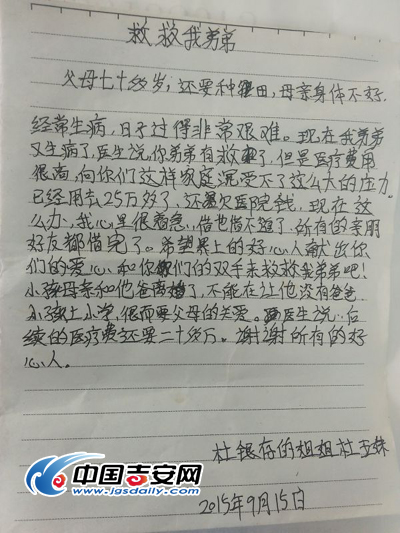 救救我弟弟
父母七十多岁,还要种田,母亲身体不好.
经常生病,日子过得非常艰难。现在我弟弟
又生病了,医生说,你弟弟有救了,但是医疗费用
很高,向你们这样家庭沉受不了这么大的压力.
已经用去25万多了,还欠医院钱,现在这
么办,我心里很着急,借也借不短了.所有的亲朋
好友都借完了。希望好心人献出你
们的爱心.和你们的双手来救救我弟弟吧!
小孩母亲和他爸离婚了,不能在让他没有爸爸.
小孩上小学,很需要父母的关爱。医生说..后
续的医疗费还要二十多万。谢谢所有的好
心人。
杜银存的姐姐杜玉妹
2015年9月15日
中国吉安网
www.jgsdaily.com